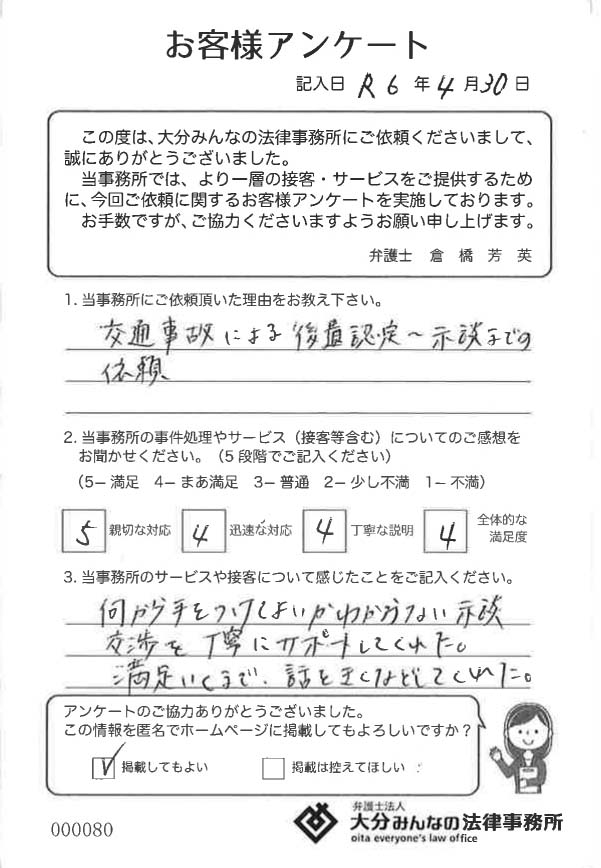 お客様アンケート
記入日 R6年4月30日
この度は、大分みんなの法律事務所にご依頼くださいまして、
誠にありがとうございました。
当事務所では、より一層の接客・サービスをご提供するため
に、今回ご依頼に関するお客様アンケートを実施しております。
お手数ですが、ご協力くださいますようお願い申し上げます。
弁護士 倉橋芳英
1. 当事務所にご依頼頂いた理由をお教え下さい。
交通事故による後遺認定～示談までの
依頼
2. 当事務所の事件処理やサービス（接客等含む）についてのご感想を
お聞かせください。（5段階でご記入ください）
（5－満足 4－まあ満足 3－普通 2－少し不満 1－不満）
5 親切な対応 4 迅速な対応 4 丁寧な説明 4 全体的な
満足度
3. 当事務所のサービスや接客について感じたことをご記入ください。
何から手をつけてよいかわからない示談
交渉を丁寧にサポートしてくれた。
満足いくまで、話をきくなどしてくれた。
アンケートのご協力ありがとうございました。
この情報を匿名でホームページに掲載してもよろしいですか？
掲載してもよい 掲載は控えてほしい
000080
弁護士法人
大分みんなの法律事務所
oita everyone's law office